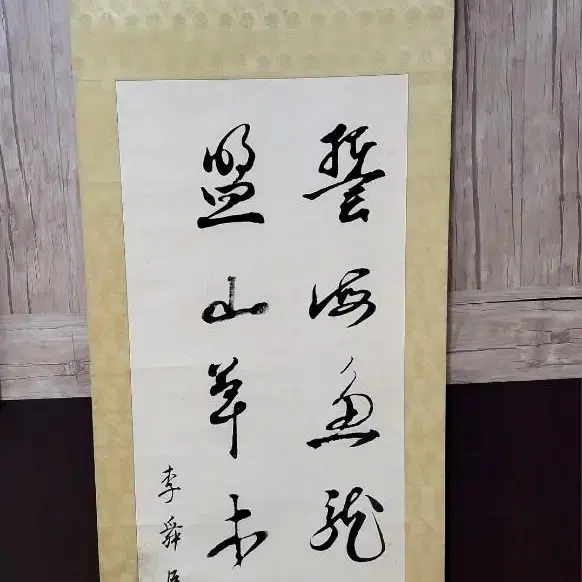 誓海魚龍
盟山草木
李舜臣